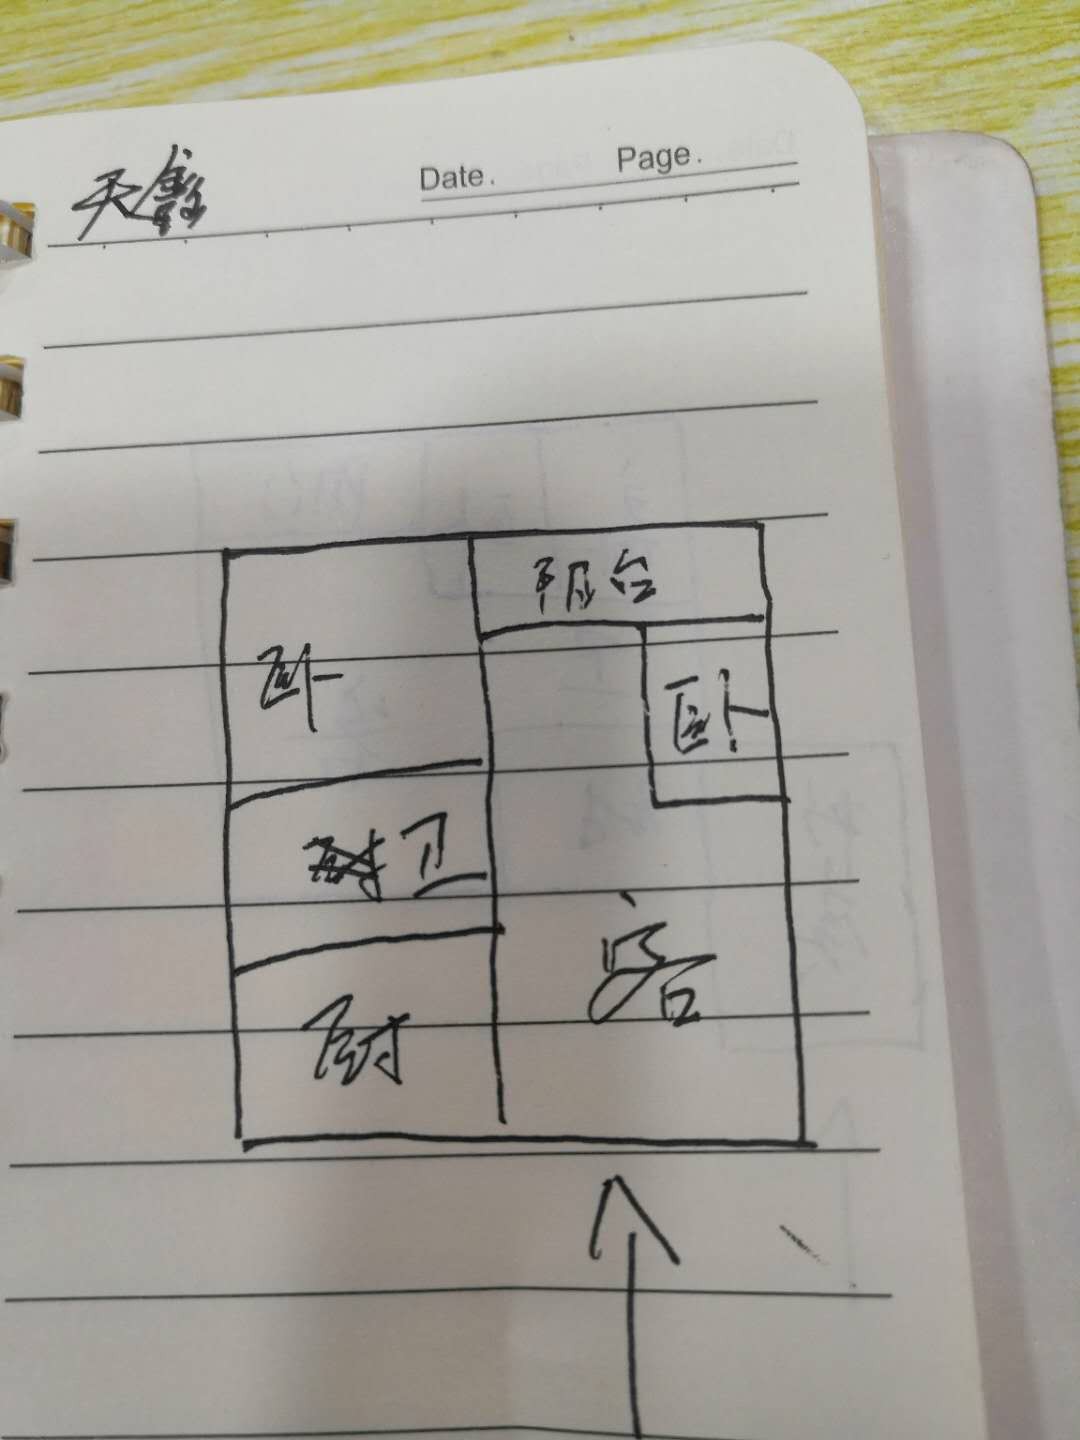 天鑫
Date. Page.
阳台
卧
卧
卫
客
厨